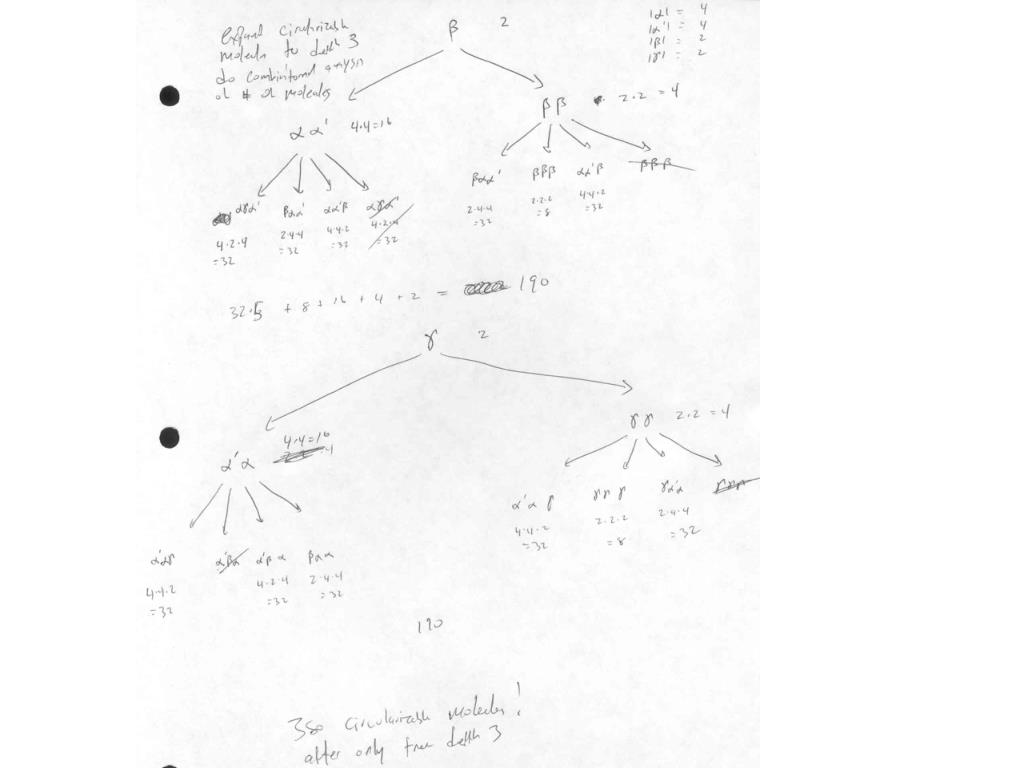 Expand circularizable
molecules to depth 3
do combinatorial analysis
of # of molecules
β 2
|α| = 4
|α'| = 4
|β| = 2
|γ| = 2
α α' 4·4=16
ββ 2·2 = 4
αγα' βαα' αα'β αγα'
4·2·4 2·4·4 4·4·2 4·2·4
=32 =32 =32 =32
βαα' βββ αα'β βββ
2·4·4 2·2·2 4·4·2
=32 =8 =32
32·5 + 8 + 16 + 4 + 2 = 190
γ 2
α'α 4·4=16
γγ 2·2 = 4
α'αγ α'βα α'βα γαα
4·4·2 4·2·4 2·4·4
=32 =32 =32
α'αγ γγγ γα'α
4·4·2 2·2·2 2·4·4
=32 =8 =32
190
380 circularizable molecules!
after only tree depth 3